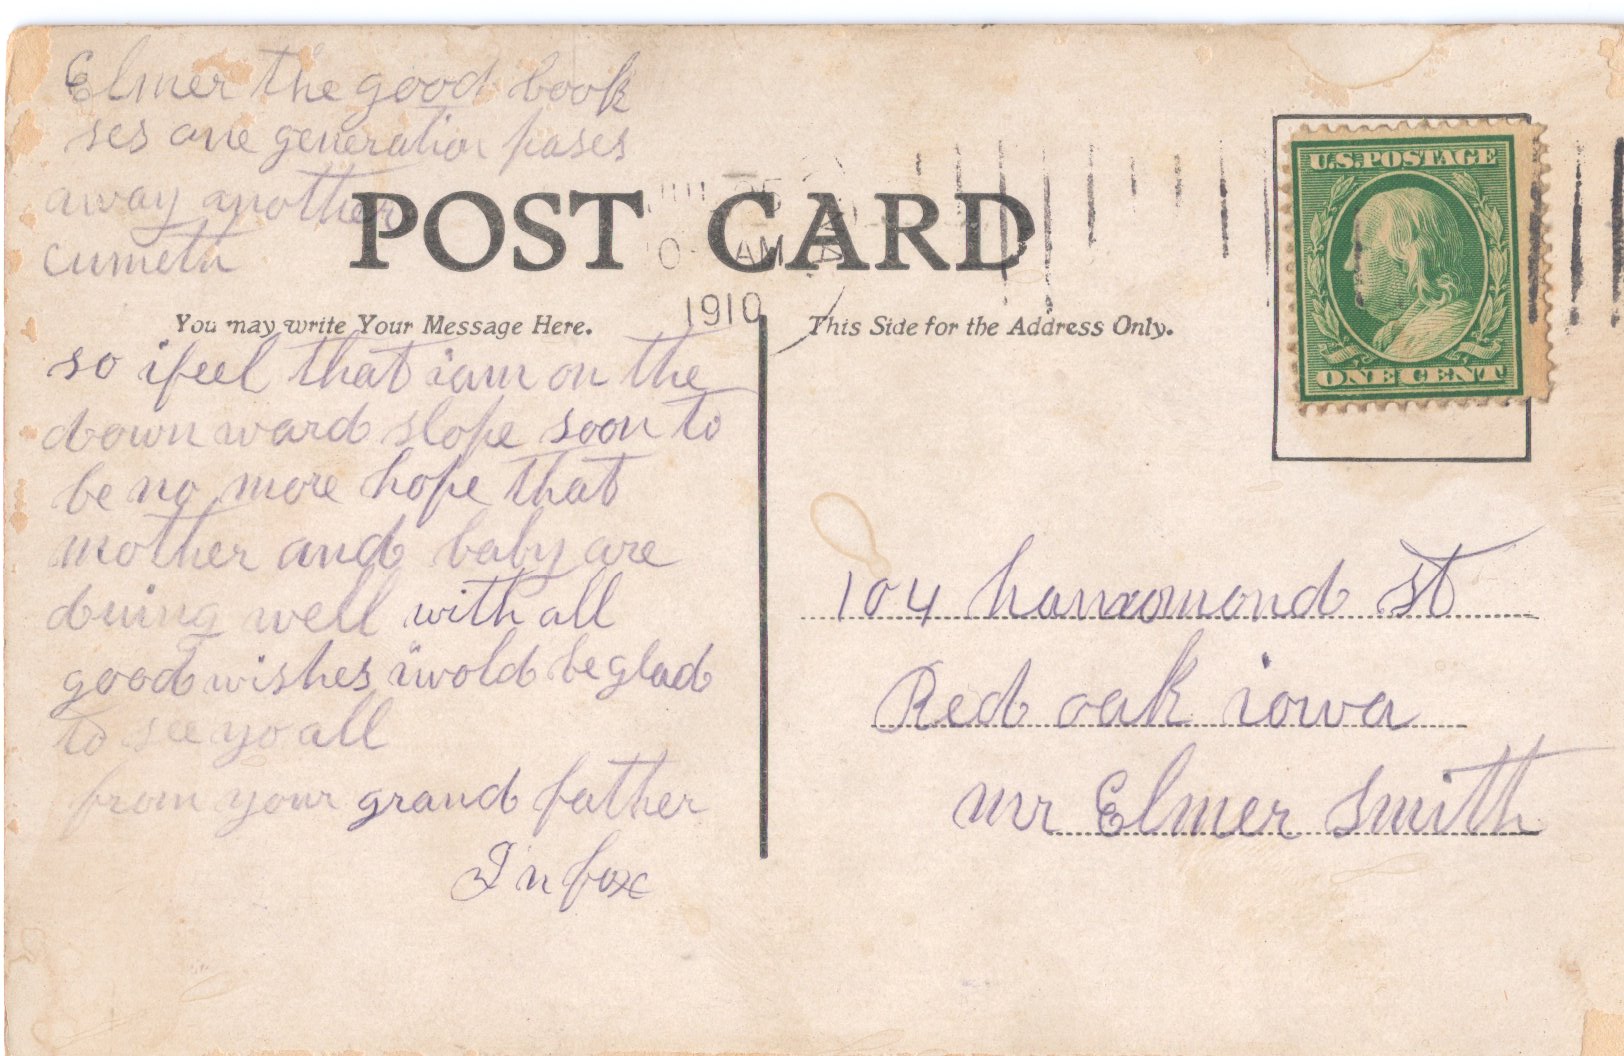 Elmer the good book
ses one generation pases
away another
cumeth
POST CARD
1910
AM
You may write Your Message Here.
This Side for the Address Only.
U.S. POSTAGE
ONE CENT
so ifeel that iam on the
down ward slope soon to
be no more hope that
mother and baby are
duing well with all
good wishes iwold be glad
to see yo all
from your grand father
fox
104 st
Red oak iowa
mr Elmer Smith